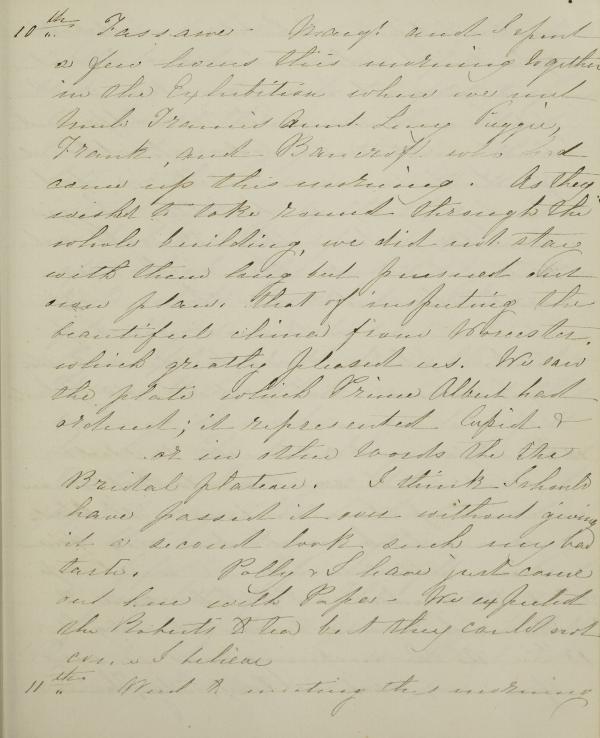 10th Fassawe - Marg't and I spent
a few hours this morning together
in the Exhibition where we met
Uncle Francis Aunt Lucy Puggie,
Frank and Bancroft who had
come up this morning. As they
wished to take round through the
whole building, we did not stay
with them long but pursued our
own plan. that of inspecting the
beautiful china from Worcester,
which greatly pleased us. We saw
the plate which Prince Albert had
ordered; it represented Cupid &
or in other words the The
Bridal plateau. I think I should
have passed it over without giving
it a second look such my bad
taste. Polly & I have just come
out here with Papa - We expected
the Roberts to tea but they could not
come I believe
11th Went to meeting this morning